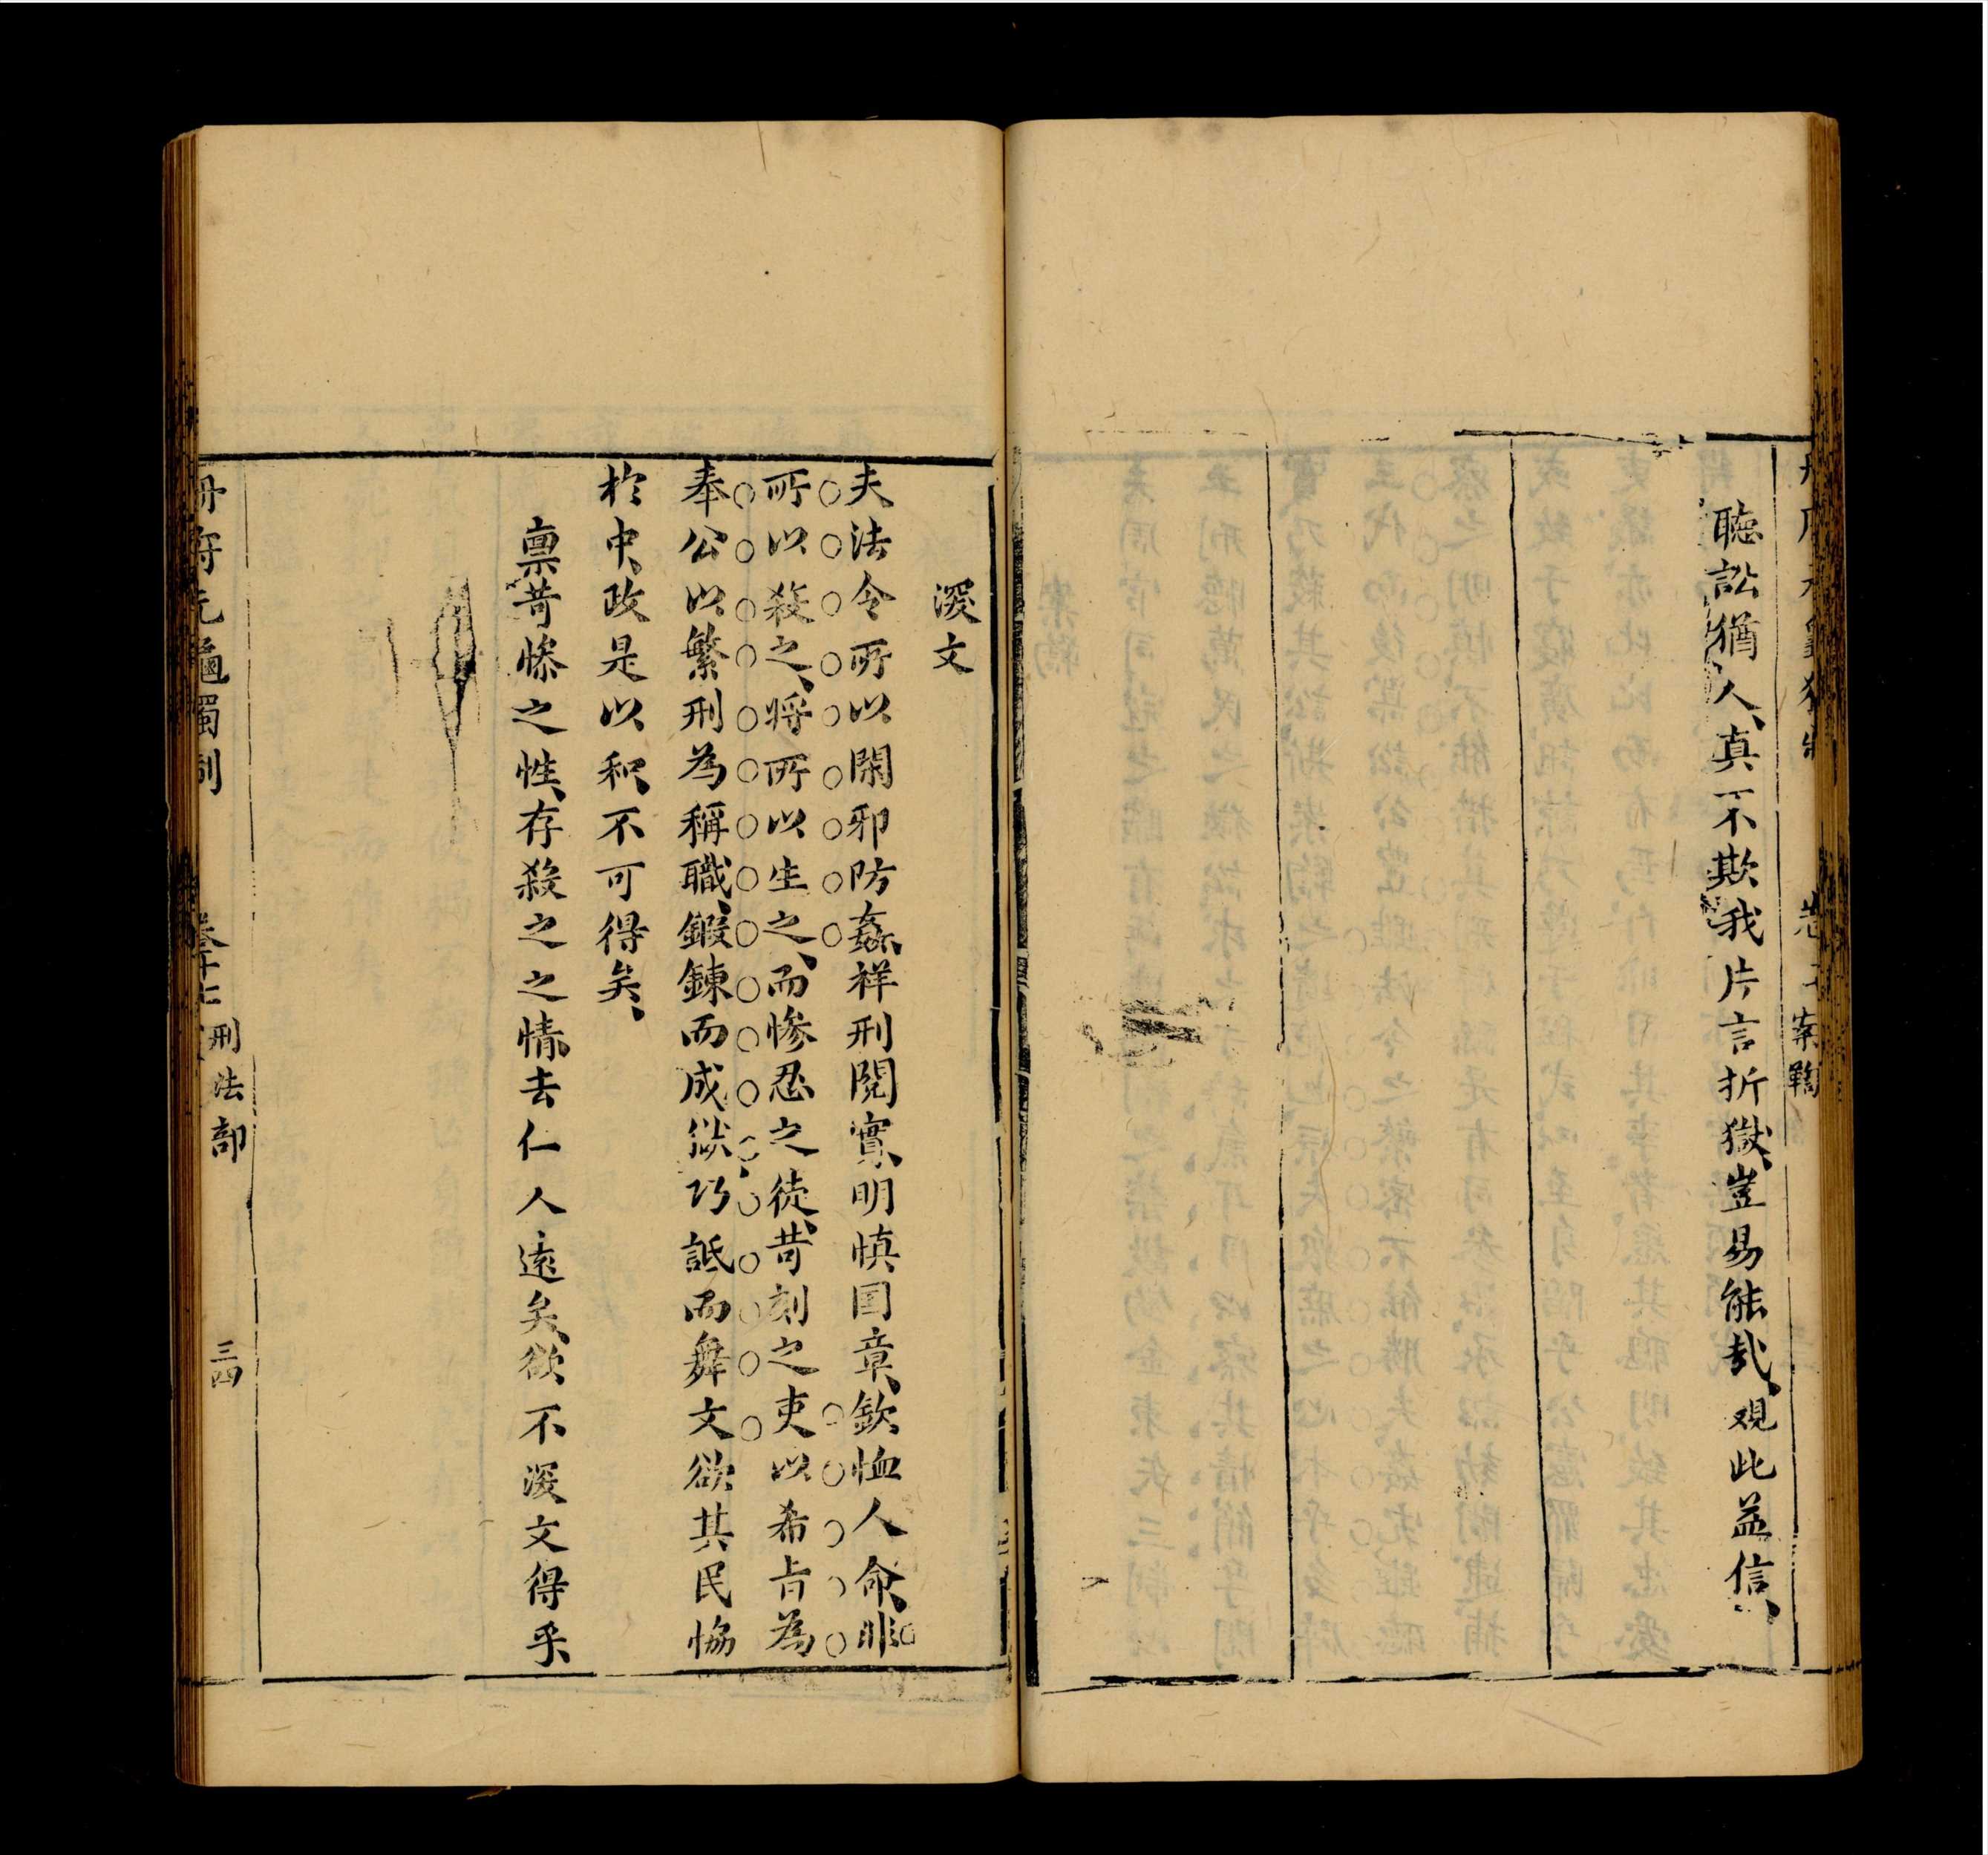 案鞫
聽訟猶人、真不欺我片言折獄、豈易能哉、观此益信、
深文
夫法令所以閑邪防姦、祥刑閱實、明慎国章、欽恤人命、非
所以殺之、將所以生之、而惨忍之徒、苛刻之吏以希旨為
奉公以繁刑為稱職、鍛鍊而成狱巧詆而舞文欲其民協
於中、政是以和、不可得矣、
禀苛慘之性、存殺之之情、去仁人遠矣、欲不深文得乎、
冊府元龜獨制
刑法部
三四